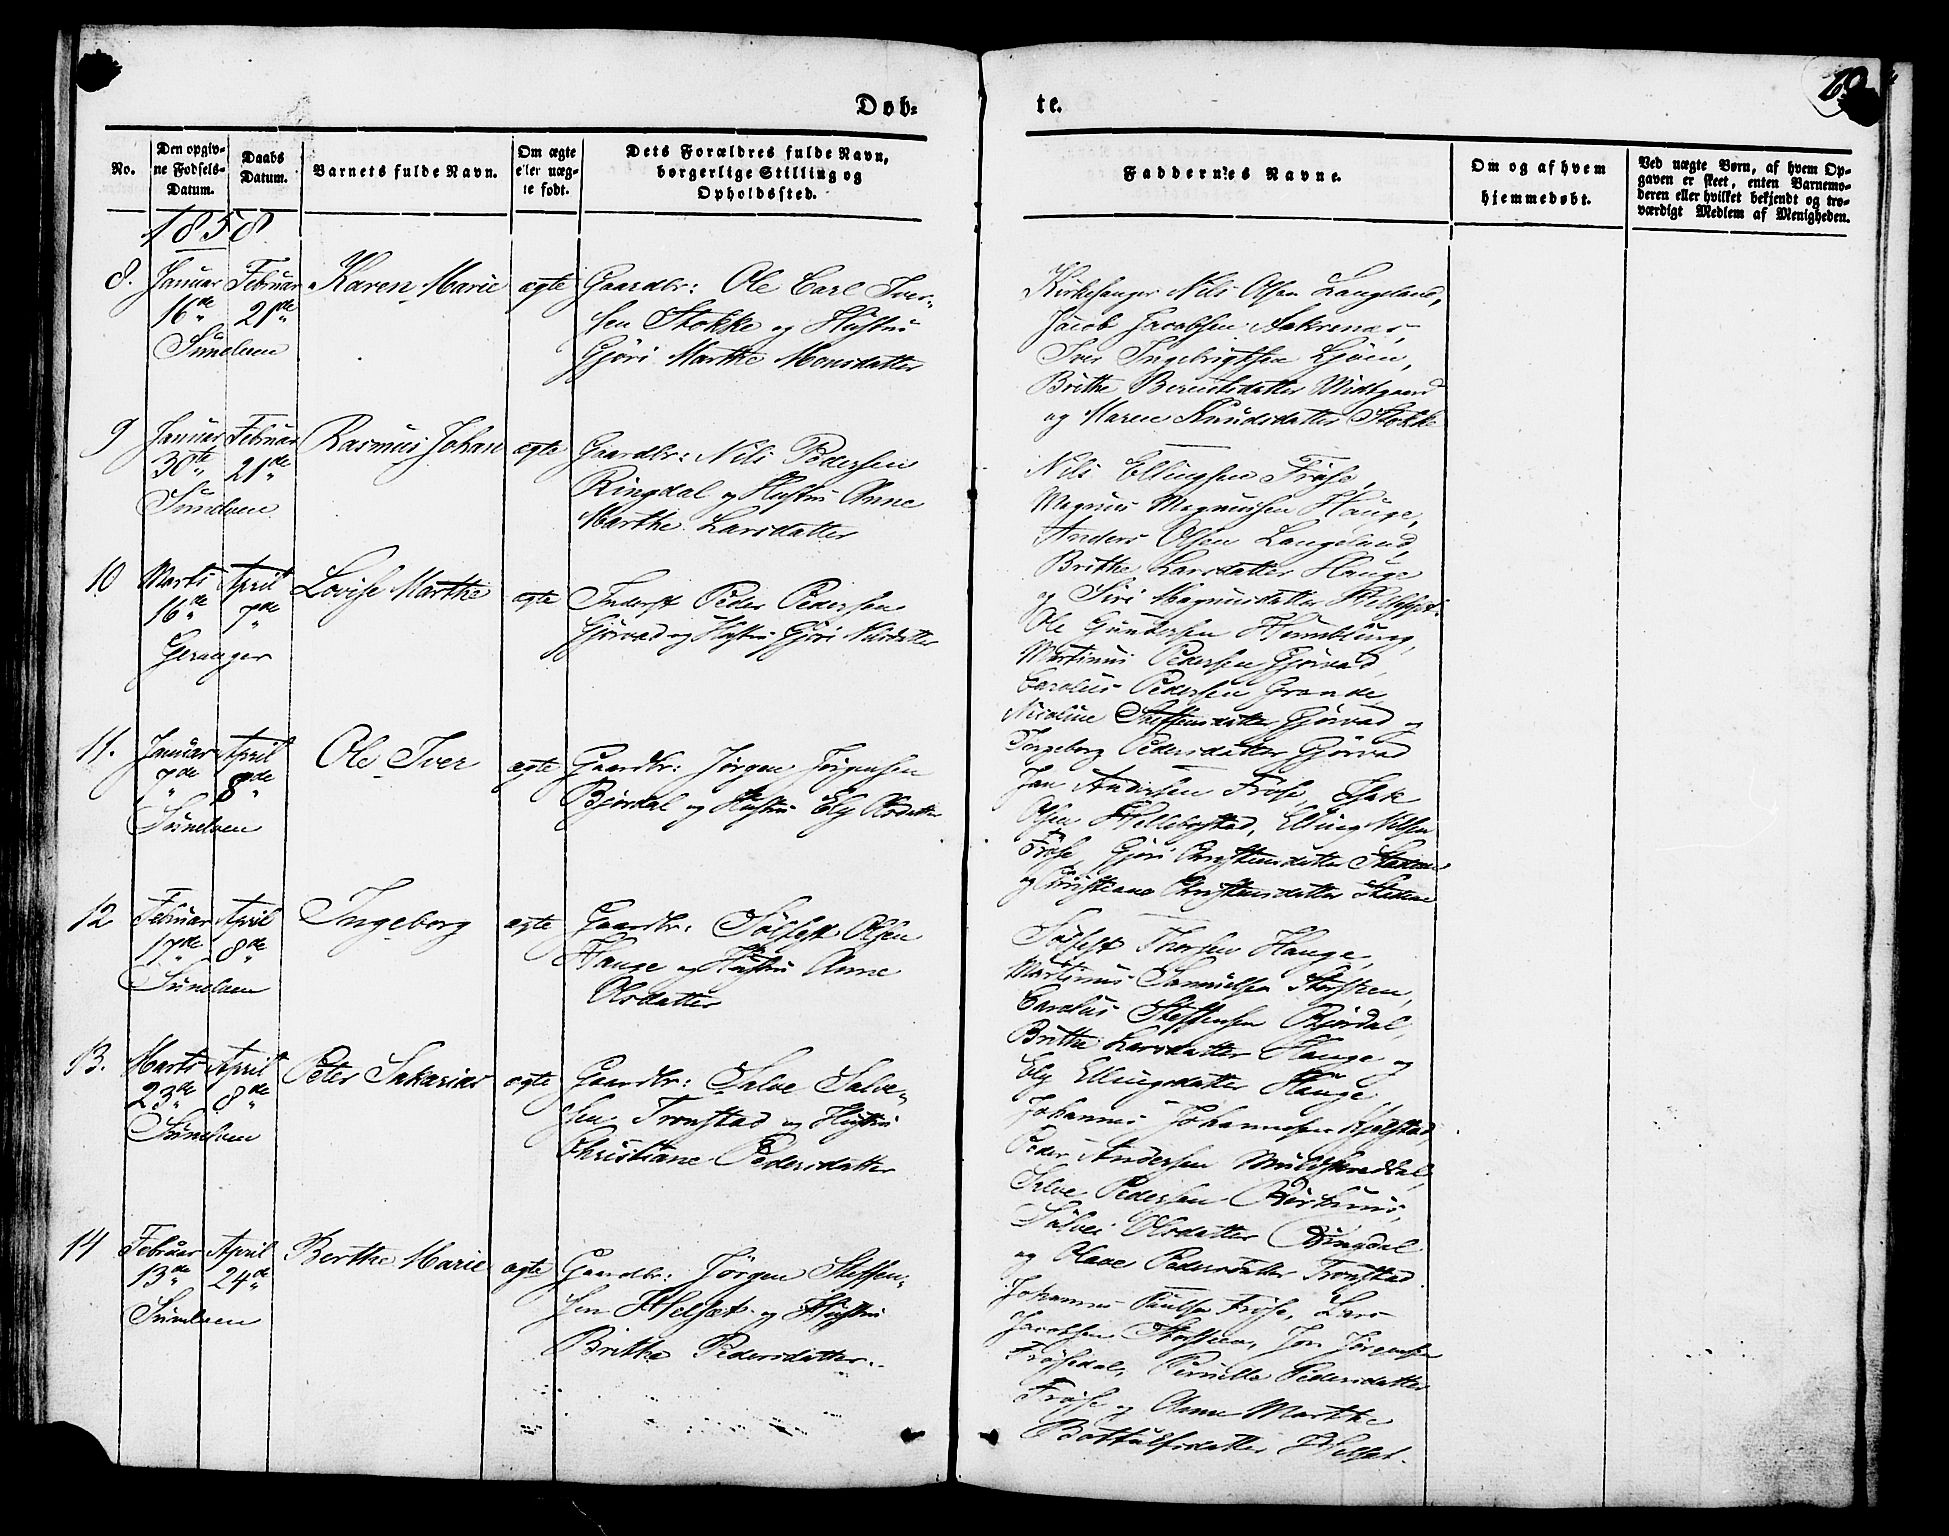 Døb=
te.
No.
Den opgiv=
ne Fødsels=
Datum.
Daabs
Datum.
Barnets fulde Navn.
Om ægte
eller uæg=
te født.
Dets Forældres fulde Navn,
borgerlige Stilling og
Opholdssted.
Faddernes Navne.
Om og af hvem
hjemmedøbt.
Ved uægte Børn, af hvem Op=
gaven er skeet, enten Barnemo=
deren eller hvilket bekjendt og tro=
værdigt Medlem af Menigheden.
1858
8.
Januar
16de
Sunelven
Februar
21de
Karen Marie
ægte
Gaardbr: Ole Carl Iver=
sen Stokke og Hustru
Gjøri Marthe Monsdatter
Kirkesanger Nils Olsen Langeland,
Jacob Jacobsen Aakrenæs,
Iver Ingebrigtsen Ljøen,
Brithe Berentsdatter Midtgaard
og Maren Knudsdatter Stokke
9
Januar
30te
Sunelven
Februar
21de
Rasmus Johan
ægte
Gaardbr: Nils Pedersen
Ringdal og Hustru Anne
Marthe Larsdatter
Nils Ellingsen Frøse,
Magnus Magnussen Hauge,
Anders Olsen Langeland,
Brithe Larsdatter Hauge
og Siri Magnusdatter
10
Marts
16de
Geranger
April
7de
Lovise Marthe
ægte
Inderst Peder Pedersen
Gjørvad og Hustru Gjøri Nilsdatter
Ole Gundersen Humblung,
Martinus Pedersen Gjørvad,
Carolus Pedersen Grande,
Nicoline Steffensdatter Gjørvad og
Ingeborg Pedersdatter Gjørvad
11.
Januar
7de
Sunelven
April
8de
Ole Iver
ægte
Gaardbr: Jørgen Jørgensen
Bjørdal og Hustru Elj Olsdatter
Jon Andersen Frøse, Isak
Olsen Hellebostad, Elling Nilsen
Frøse, Gjøri Christensdatter Stadem
og Christiane Christensdatter Stadem
12
Februar
17de
Sunelven
April
8de
Ingeborg
ægte
Gaardbr: Sølfest Olsen
Hauge og Hustru Anne
Olsdatter
Sølfest Thorsen Hauge,
Martinus Samuelsen Storsteen,
Carolus Steffensen Bjørdal,
Brithe Larsdatter Hauge og
Elj Ellingsdatter Hauge
13.
Marts
23de
Sunelven
April
8de
Peter Sakarias
ægte
Gaardbr: Salve Salve=
sen Tronstad og Hustru
Christiane Pedersdatter
Johannes Johannesen Kjelstad
Peder Andersen Muldskreddal,
Salve Pedersen
Sølvei Olsdatter Ringdal
og Olave Pedersdatter Tronstad.
14
Februar
13de
Sunelven
April
24de
Berthe Marie
ægte
Gaardbr: Jørgen Steffen=
sen Helset og Hustru
Brithe Pedersdatter.
Johannes Paulsen Frøse, Lars
Jacobsen Storsteen, Jon Jørgensen
Frøsedal, Pernille Pedersdatter
Frøse og Anne Marthe
Bottulfsdatter Helset.